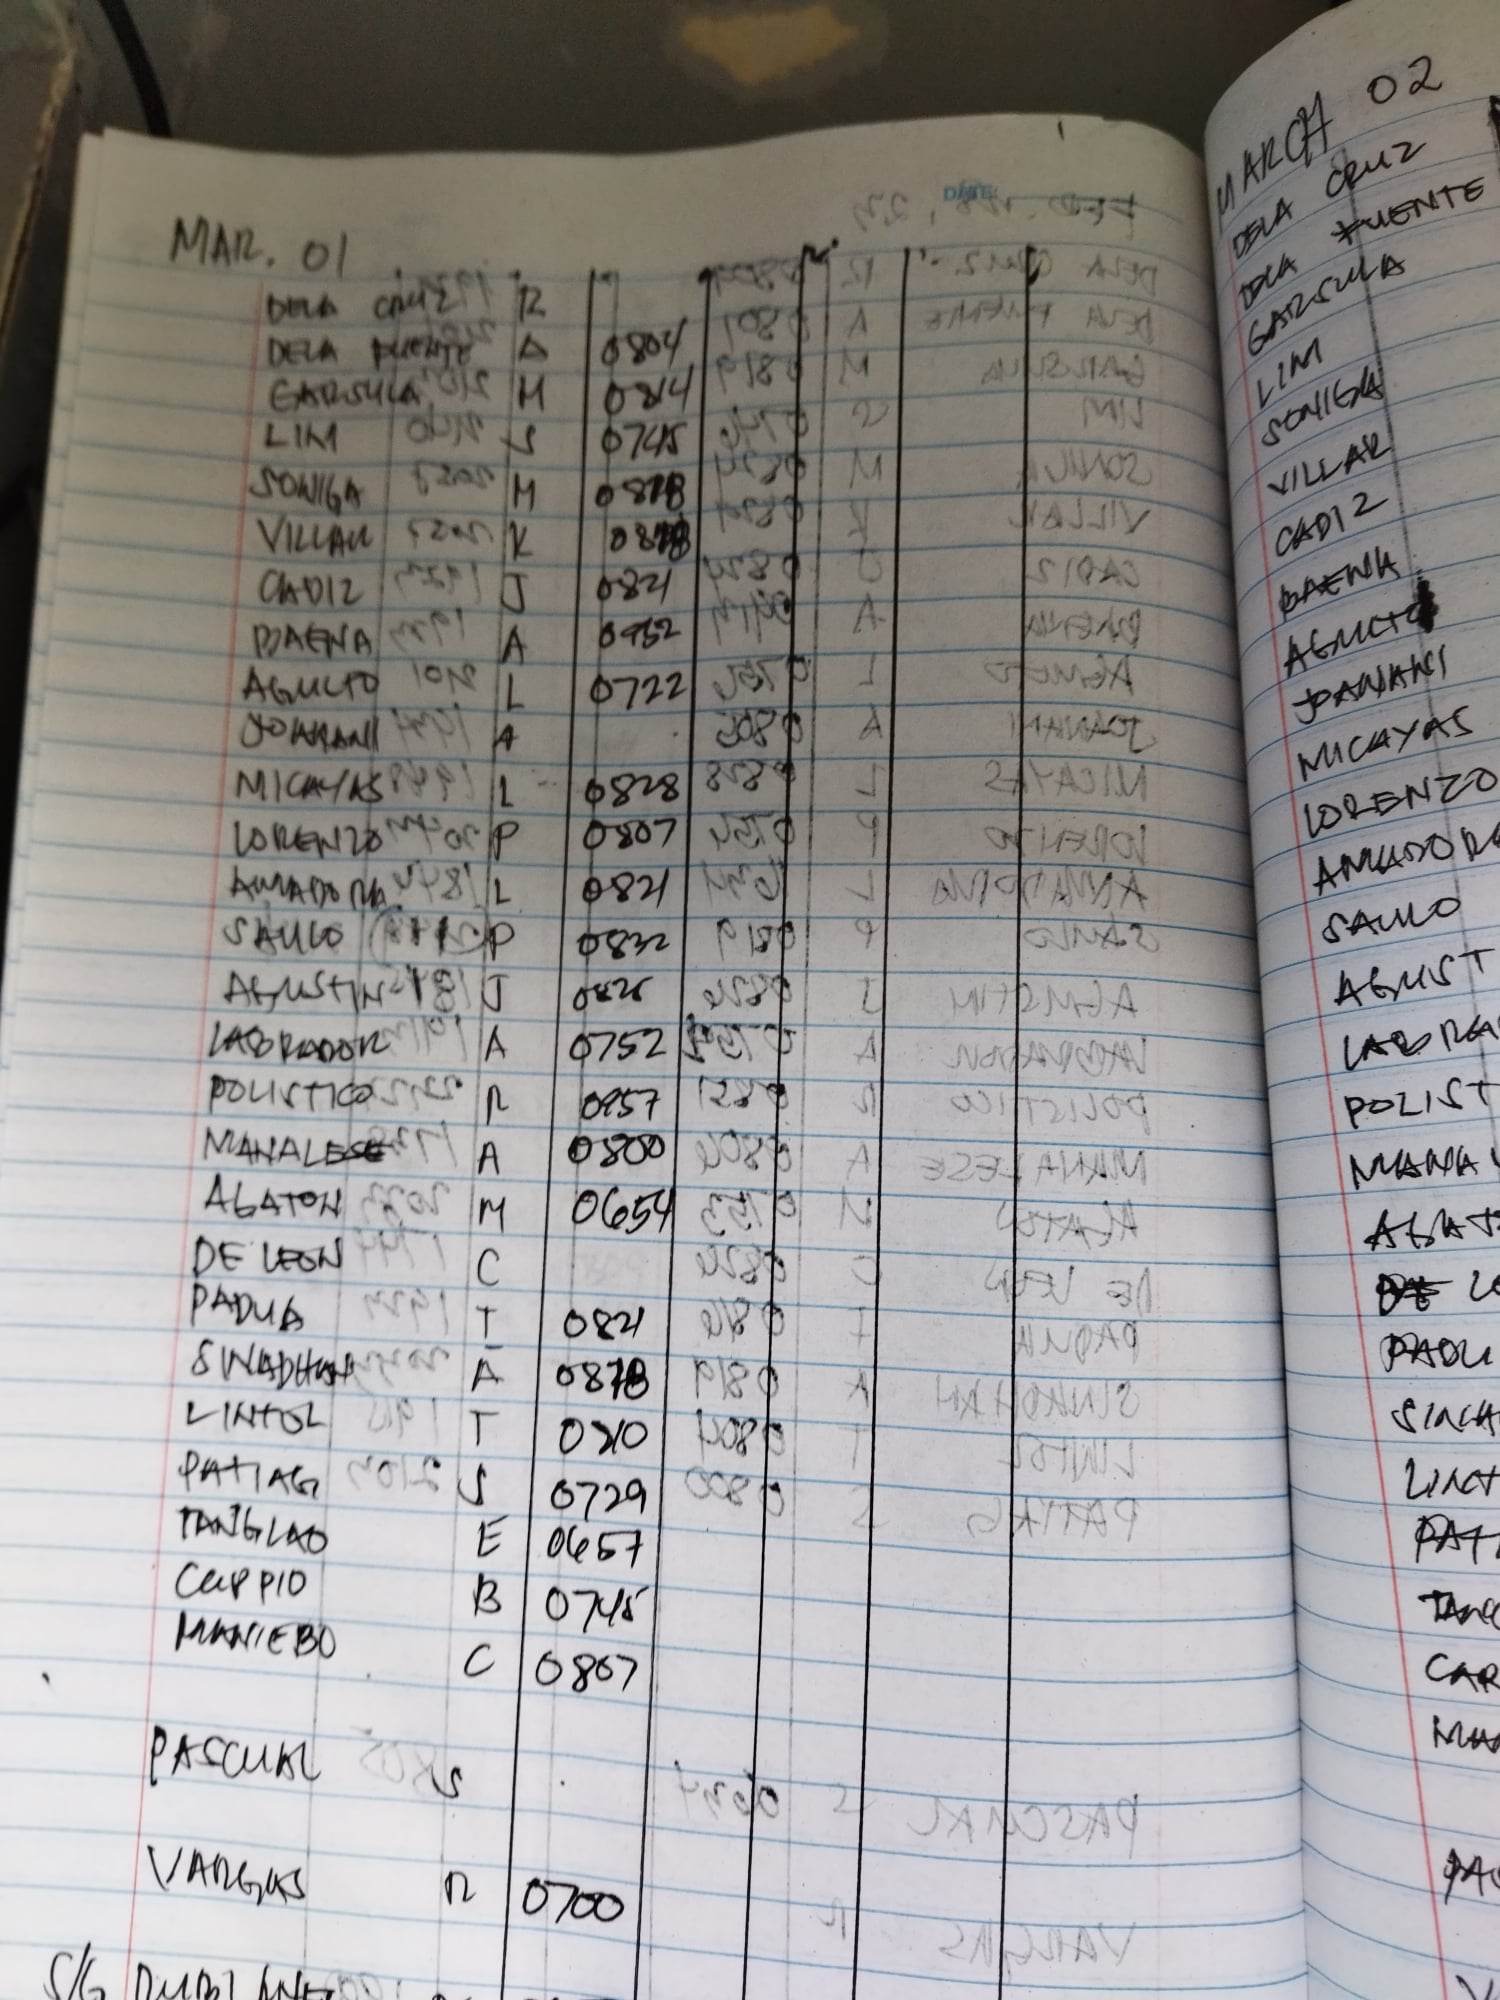 MAR. 01
DELA CRUZ R
DELA FUENTE A 0804
GARSULA M 0814
LIM S 0745
SONIGA M
VILLAR K
CADIZ J 0821
BAENA A 0952
AGULTO L 0722
JOANANI A
MICAYAS L 0828
LORENZO P 0807
AMADORA L 0821
SAULO P 0832
AGUSTIN J
LABRADOR A 0752
POLISTICO R 0957
MANALESE A 0800
AGATON M 0654
DE LEON C
PADUA T 0821
A
LINTOL T 0810
PATIAG S 0729
TANGLAO E 0657
CARPIO B 0745
MANIEBO C 0807
PASCUAL S
VARGAS R 0700
S/G
MARCH 02
DELA CRUZ
DELA FUENTE
GARSULA
LIM
SONIGA
VILLAR
CADIZ
BAENA
AGULTO
JOANANI
MICAYAS
LORENZO
AMADORA
SAULO
AGUST
LABRA
POLIST
MANA
AGAT
PADU
LINT
PATI
CAR